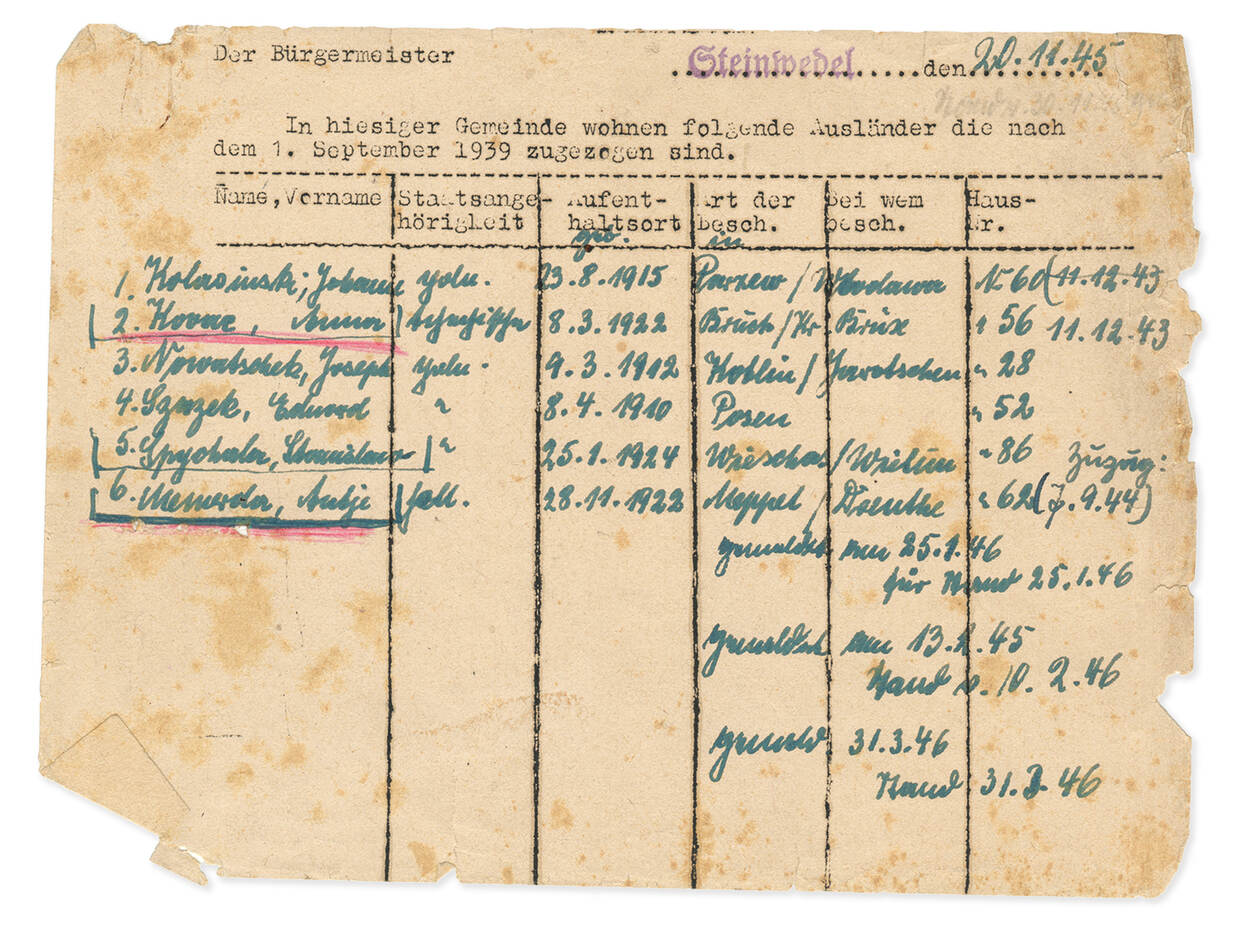 Der Bürgermeister
Steinwedel den 20.11.45
In hiesiger Gemeinde wohnen folgende Ausländer die nach
dem 1. September 1939 zugezogen sind.
Name, Vorname Staatsange- Aufent- Art der Bei wem Haus-
hörigkeit haltsort besch. besch. Nr.
geb. in
1. Kolasinski, Johann poln. 23.8.1915 Parzew / Wlodawa 60 (11.12.43
2. Kovaz, Anna tschechische 8.3.1922 Bruch / Kr Brüx " 56 11.12.43
3. Nowatschek, Joseph poln. 9.3.1912 Koblin / Jarotschen " 28
4. Szazek, Eduard " 8.4.1910 Posen " 52
5. Spychala, Stanislaw " 25.1.1924 / Wielun " 86 Zuzug:
6. Antje holl. 28.11.1922 Meppel / Drenthe " 62 (7.9.44)
gemeldet am 25.1.46
für Stand 25.1.46
gemeldet am 13.2.45
Stand v. 10.2.46
gemeld 31.3.46
Stand 31.3.46